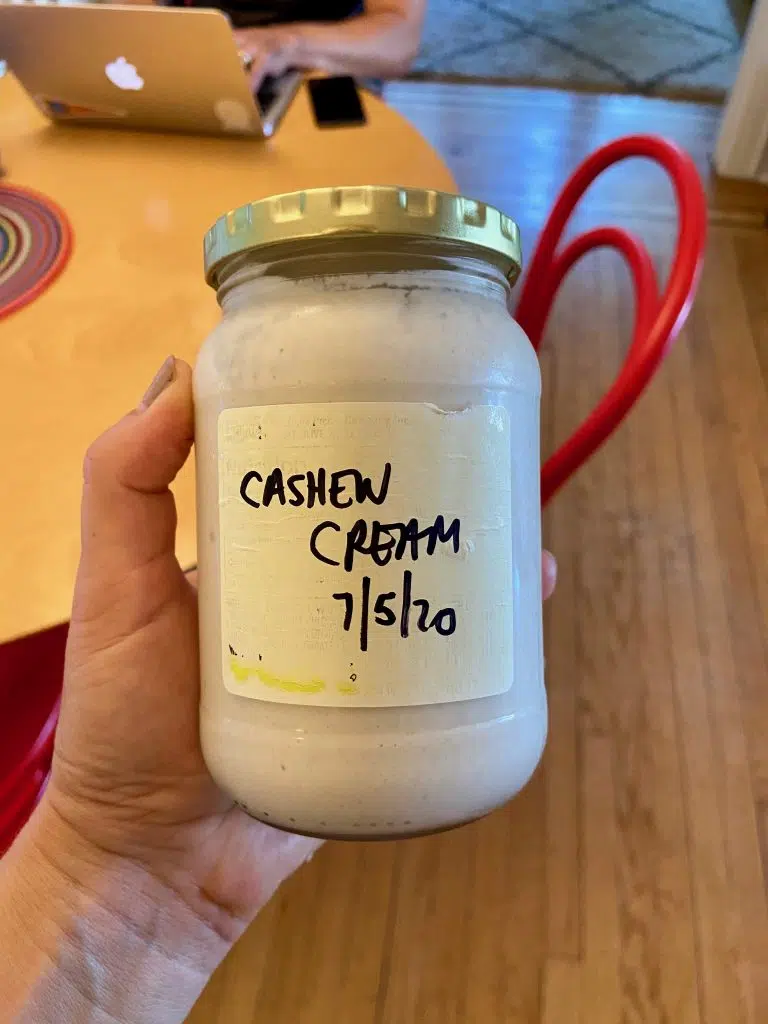 CASHEW
CREAM
7/5/20